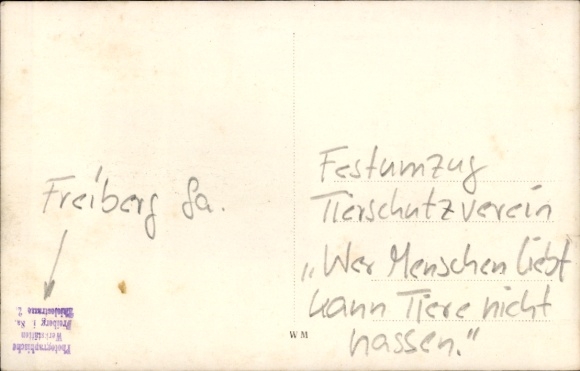 Freiberg Sa.
Festumzug
Tierschutzverein
„Wer Menschen liebt
kann Tiere nicht
hassen."
Photographische
Werkstätten
Freiberg i. Sa.
WM